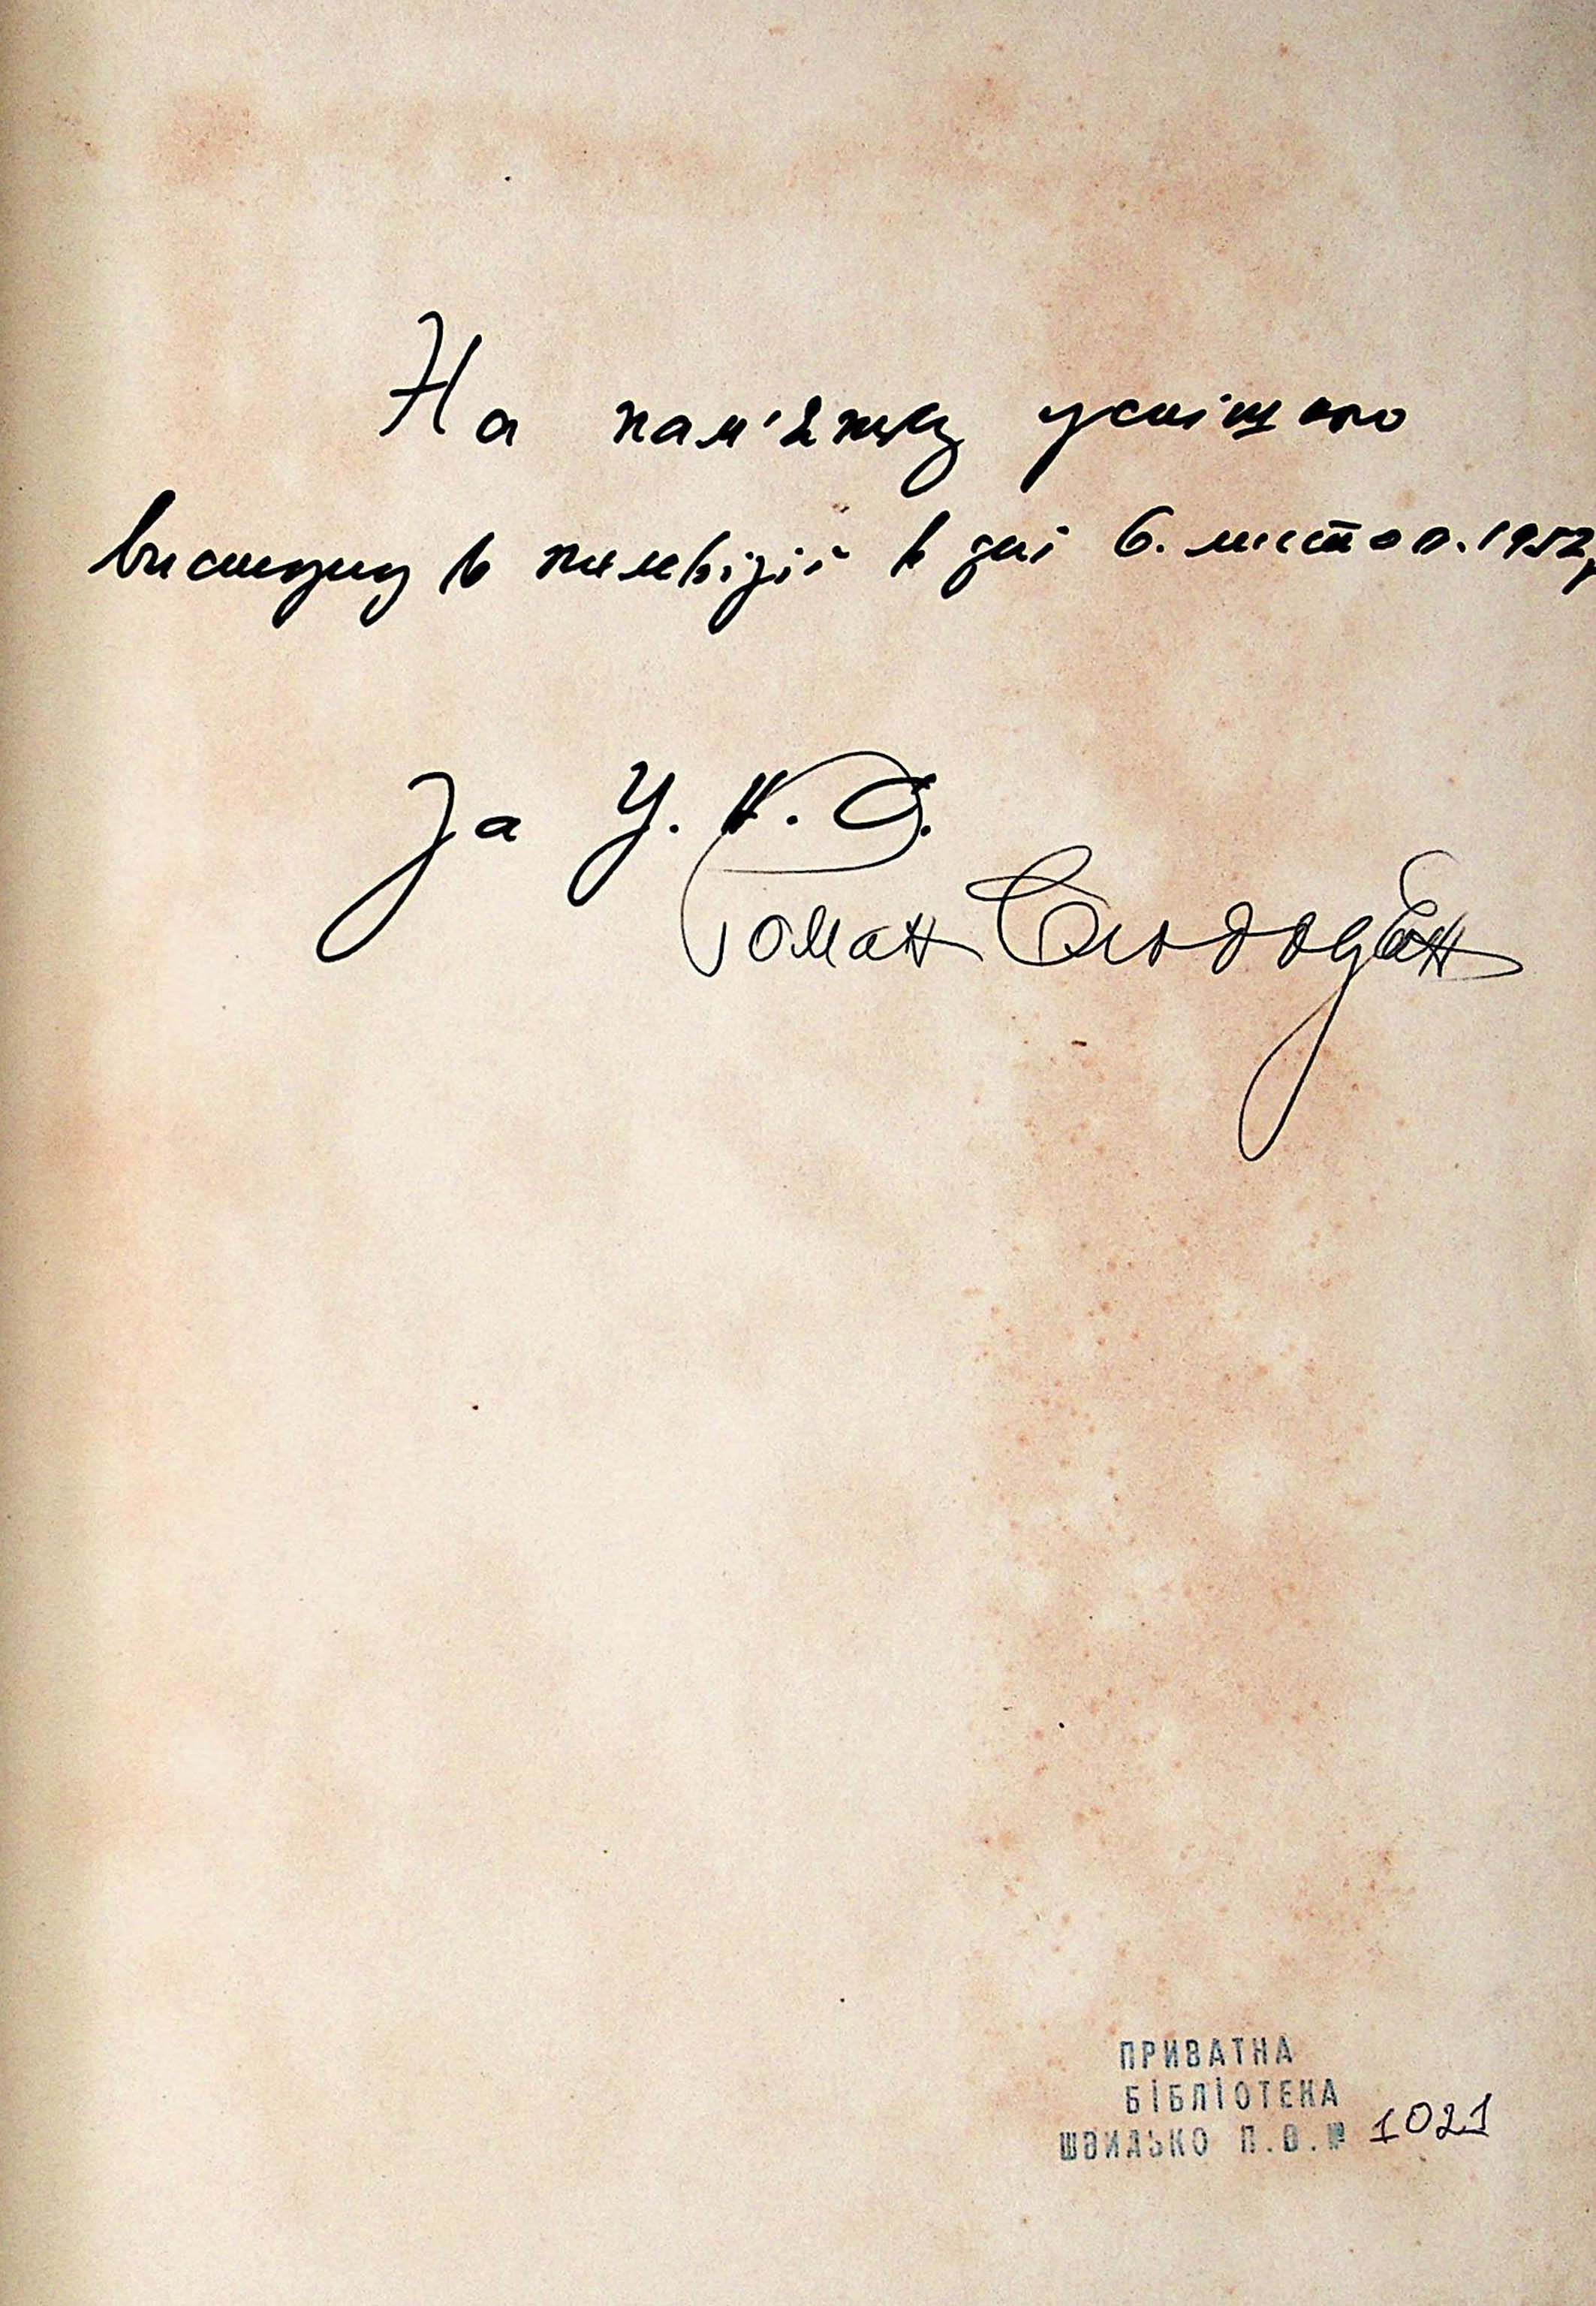 На пам'ятку успішного
виступу в телевізії в дні 6. листоп. 1952
За У. К. О.
Роман
ПРИВАТНА
БІБЛІОТЕКА
ШВИДЬКО П.В.№ 1021